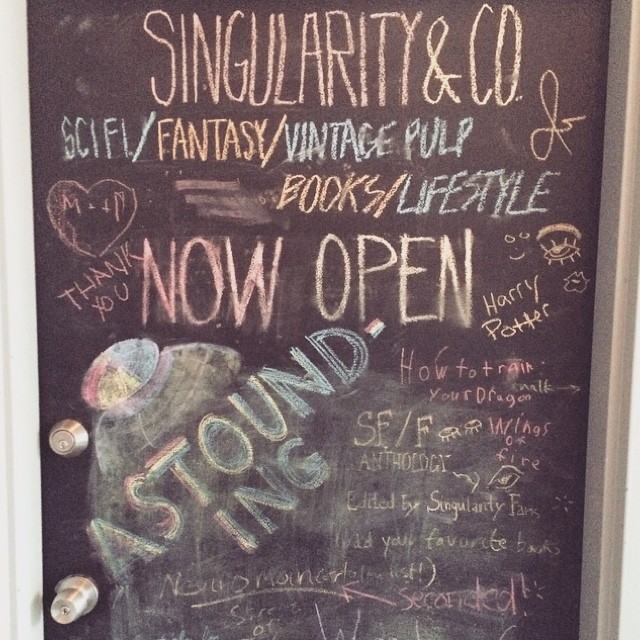 SINGULARITY & CO.
SCI FI/FANTASY/VINTAGE PULP
BOOKS/LIFESTYLE
M + M
THANK
YOU
NOW OPEN
Harry
Potter
ASTOUND-
ING
How to train
your Dragon
SF/F
ANTHOLOGY
Wings
of
fire
Edited by Singularity Fans
Add your favorite books
Neuromancer
seconded!